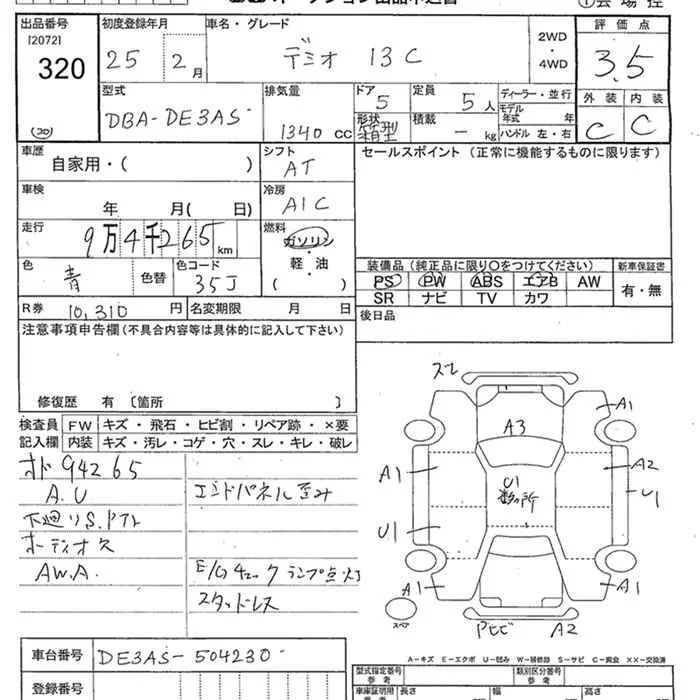 出品番号 初度登録年月 車名・グレード 評価点
[2072]
320 25 2月 デミオ 13C 2WD・4WD 3.5
(20)
型式 排気量 ドア 定員 ディーラー・並行 外装 内装
DBA-DE3AS 1340 cc 5 5人 モデル年式 年 C C
形状 箱型 積載 - kg ハンドル 左・右
車歴 シフト セールスポイント(正常に機能するものに限ります)
自家用・( ) AT
車検 冷房
年 月( 日) A/C
走行 燃料
9万4千265km ガソリン・軽・油
( )
色 青 色替 色コード 35J
装備品(純正品に限り〇をつけてください) 新車保証書
PS PW ABS エアB AW 有・無
SR ナビ TV カワ
R券 10,310円 名変期限 月 日 後日品
注意事項申告欄(不具合内容等は具体的に記入して下さい)
修復歴 有〔箇所 〕
検査員記入欄
FW キズ・飛石・ヒビ割・リペア跡・×要
内装 キズ・汚レ・コゲ・穴・スレ・キレ・破レ
オド 94265
A.U エンドパネル歪み
下廻りS.
オーディオ欠
AW.A. E/Gチェックランプ点灯
スタッドレス
スレ
A1
A3
A1 A2
U1
U1
U1
A1 A1
スペア
A2
A-キズ E-エクボ U-凹み W-補修跡 S-サビ C-腐食 XX-交換済
車台番号 DE3AS-504230
登録番号
型式指定番号 参考 類別区分番号 参考
車庫証明用 参考 長さ 幅 高さ